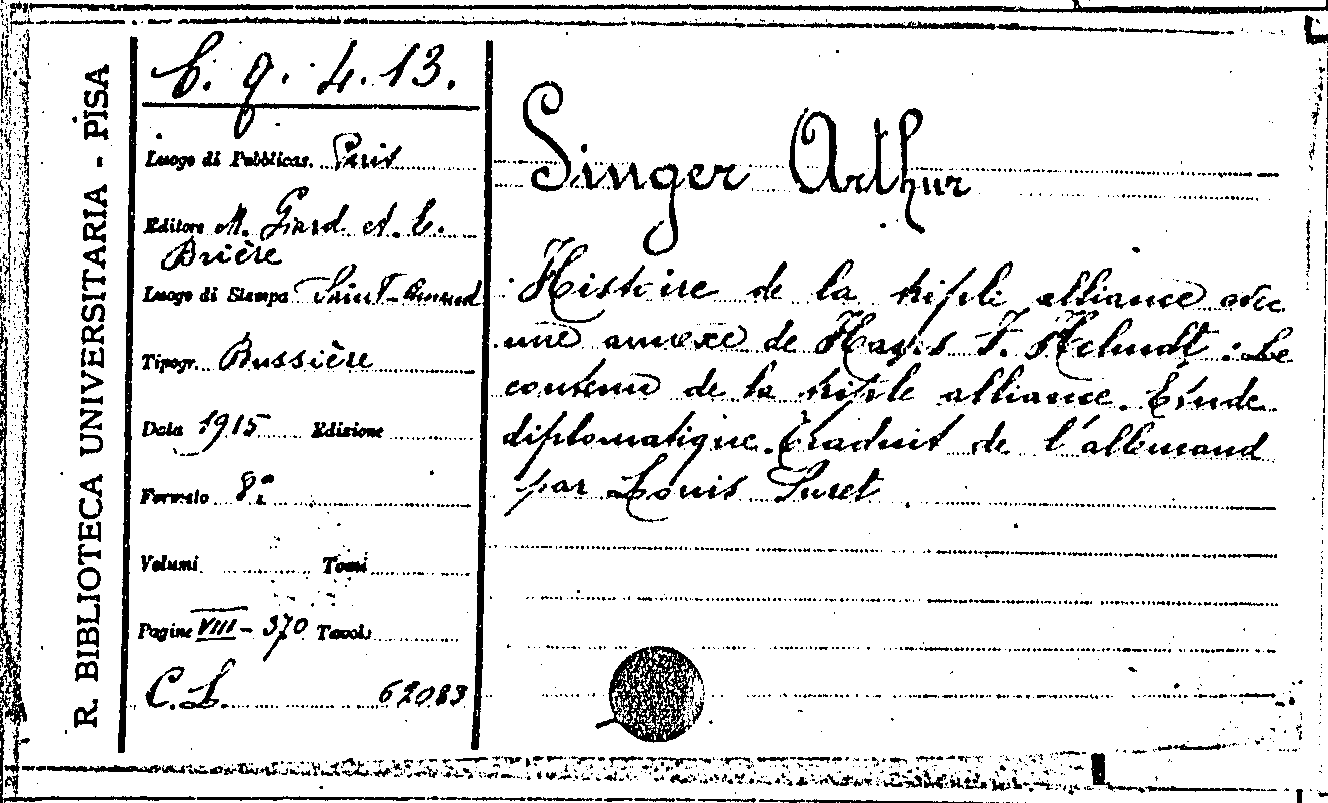 R. BIBLIOTECA UNIVERSITARIA - PISA
b. q. 4. 13.
Luogo di Pubblicas. Paris
Editore M. Giard et E.
Brière
Luogo di Stampa Saint-Amand
Tipogr. Bussière
Data 1915 Edizione
Formato 8.º
Volumi Tomi
Pagine VIII - 370 Tavole
C.L. 62083
Singer Arthur
Histoire de la triple alliance avec
une annexe de Hans F. Helmolt : Le
contenu de la triple alliance. Etude
diplomatique. Traduit de l'allemand
par Louis Suret